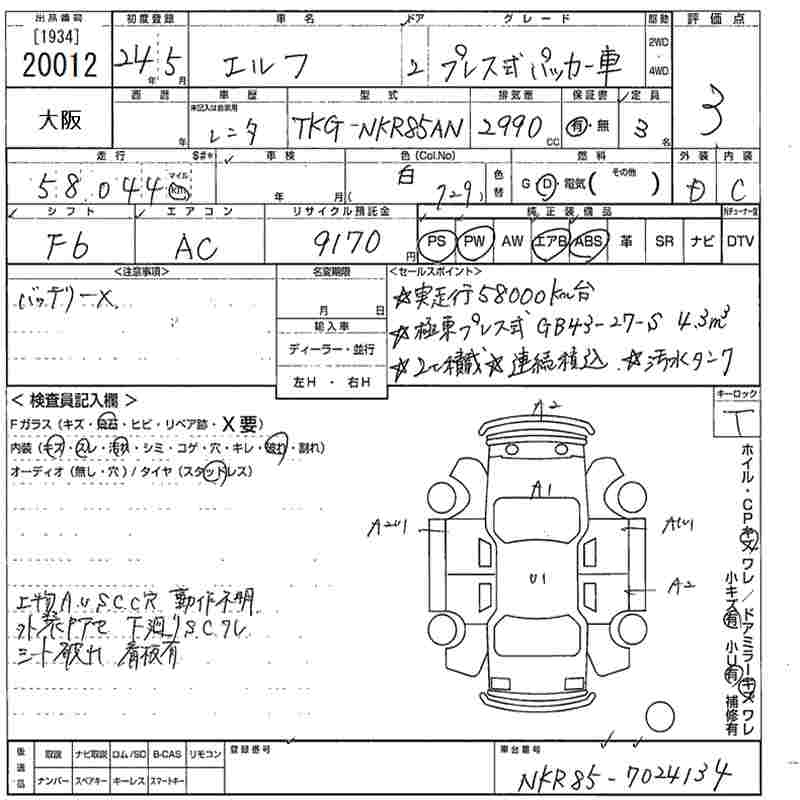 出品番号 初度登録 車名 ドア グレード 駆動 評価点
[1934]
20012 24年 5月 エルフ 2 プレス式パッカー車 2WD・4WD 3
大阪 西暦 車歴 型式 排気量 保証書 定員
年 未記入は自家用 レンタ TKG-NKR85AN 2990 CC 有・無 3名
走行 S#* 車検 色(Col.No) 燃料 外装 内装
58,044 マイル km 年 月 白 ( 729 ) 色替 G D・電気 ( その他 ) D C
シフト エアコン リサイクル預託金 純正装備品
F6 AC 9170円 PS PW AW エアB ABS 革 SR ナビ DTV
<注意事項> 名変期限 <セールスポイント>
バッテリーX 月 日 ☆実走行58000km台
輸入車 ☆極東プレス式 GB43-27-S 4.3m³
ディーラー・並行 ☆2t積載☆連続積込 ☆汚水タンク
左H・右H
<検査員記入欄> キーロック
Fガラス(キズ・飛石・ヒビ・リペア跡・X要) T
内装(キズ・スレ・汚れ・シミ・コゲ・穴・キレ・破れ・割れ)
オーディオ(無し・穴)/タイヤ(スタッドレス)
A2
A1
A2U1 AU1
U1 A2
ホイル・CPキズワレ/ドアミラーキズワレ
小キズ有 小U有 補修有
上物AUSCC穴 動作不明
下廻りSCサビ
シート破れ 看板有
後送品 取説 ナビ取説 ロム/SD B-CAS リモコン 登録番号 車台番号
ナンバー スペアキー キーレス スマートキー NKR85-7024134